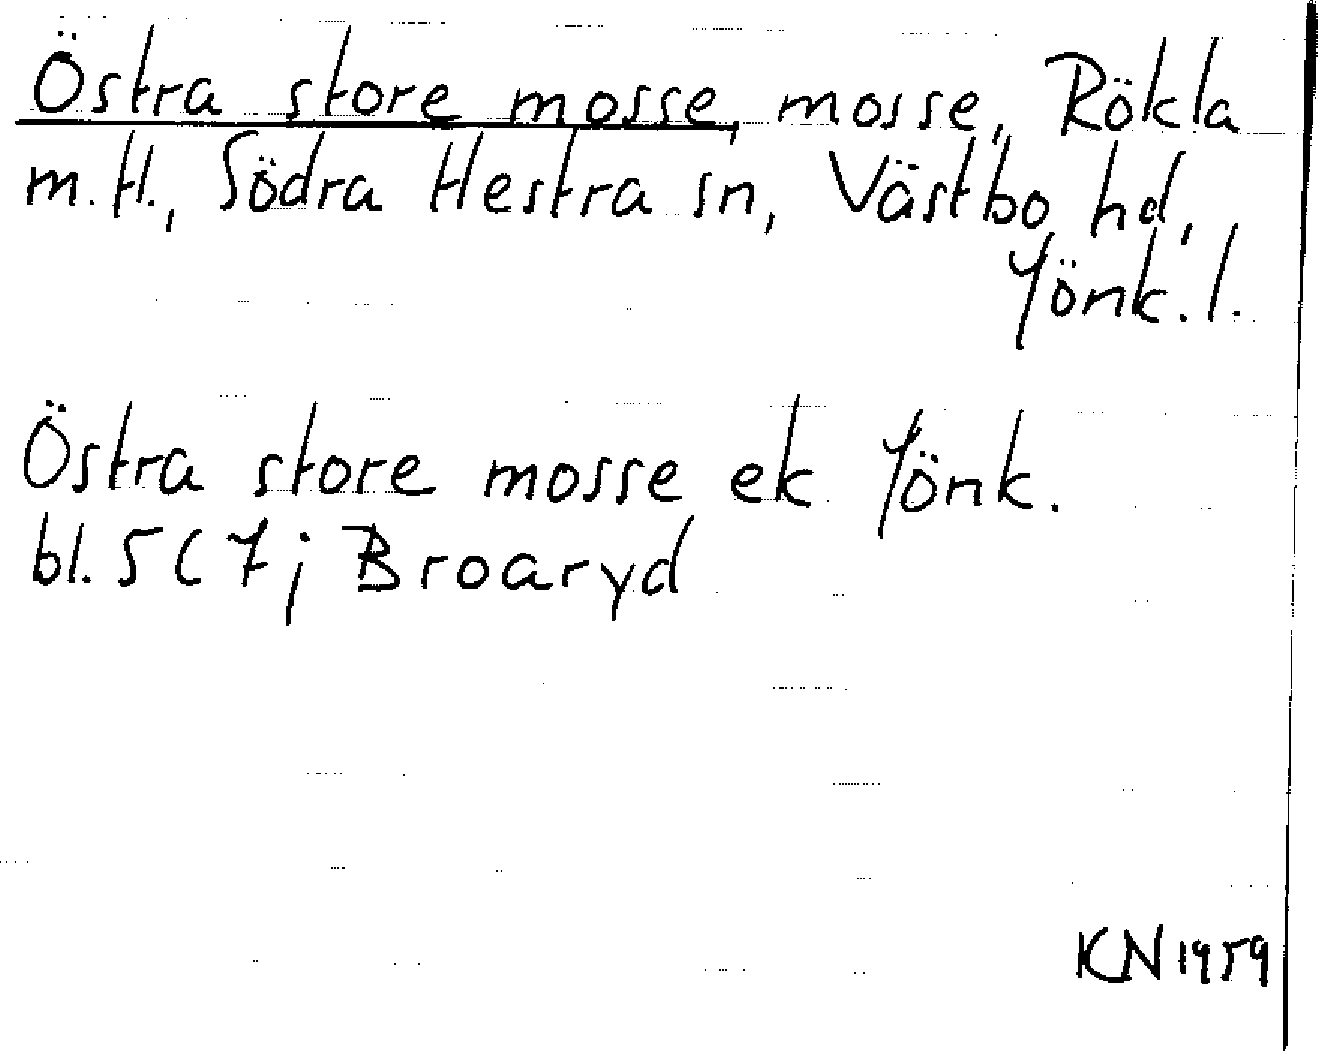 Östra store mosse, mosse, Rökla
m.fl., Södra Hestra sn, Västbo hd,
Jönk.l.
Östra store mosse ek Jönk.
bl. 5C7j Broaryd
KN 1959